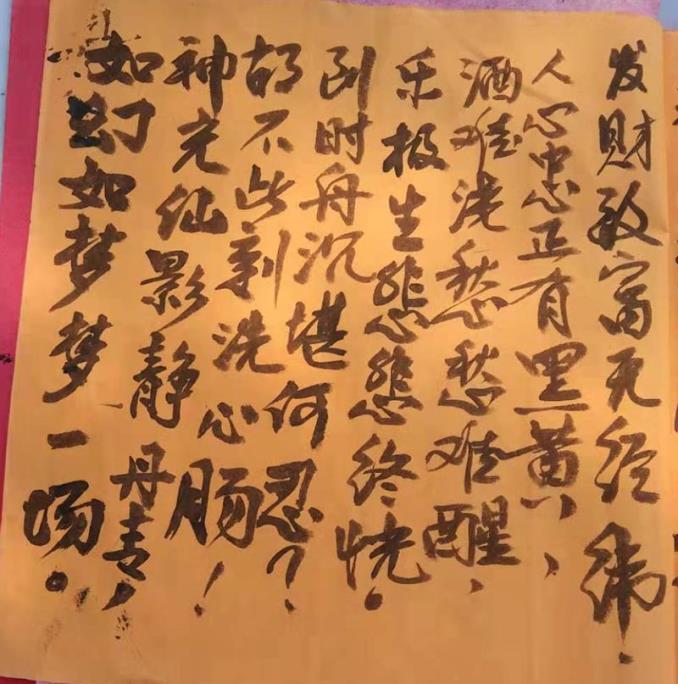 发财致富无经纬.
人心忠正有黑黄,
酒难浇愁愁难醒,
乐极生悲悲终恍.
到时舟沉堪何忍?
胡不此刻洗心肠!
神光仙影静丹青,
如幻如梦梦一场.